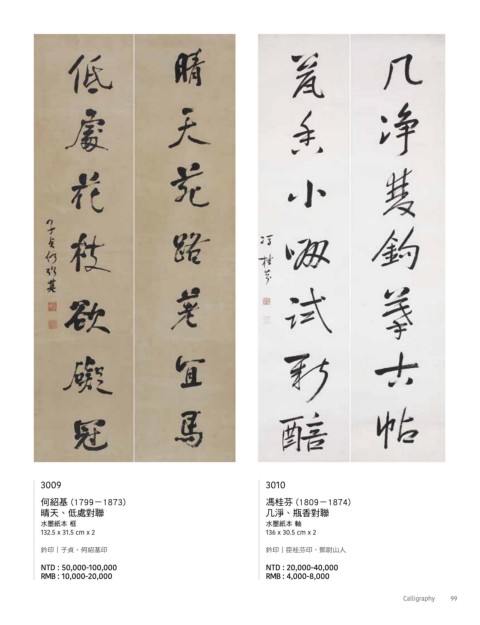 晴天苑路宜馬
低處花枝欲礙冠
子貞何紹基
几净雙鉤摹古帖
瓮香小啜試新醅
馮桂芬
3009
何紹基 (1799－1873)
晴天、低處對聯
水墨紙本 框
132.5 x 31.5 cm x 2
鈐印｜子貞、何紹基印
NTD : 50,000-100,000
RMB : 10,000-20,000
3010
馮桂芬 (1809－1874)
几淨、瓶香對聯
水墨紙本 軸
136 x 30.5 cm x 2
鈐印｜臣桂芬印、鄧尉山人
NTD : 20,000-40,000
RMB : 4,000-8,000
Calligraphy 99